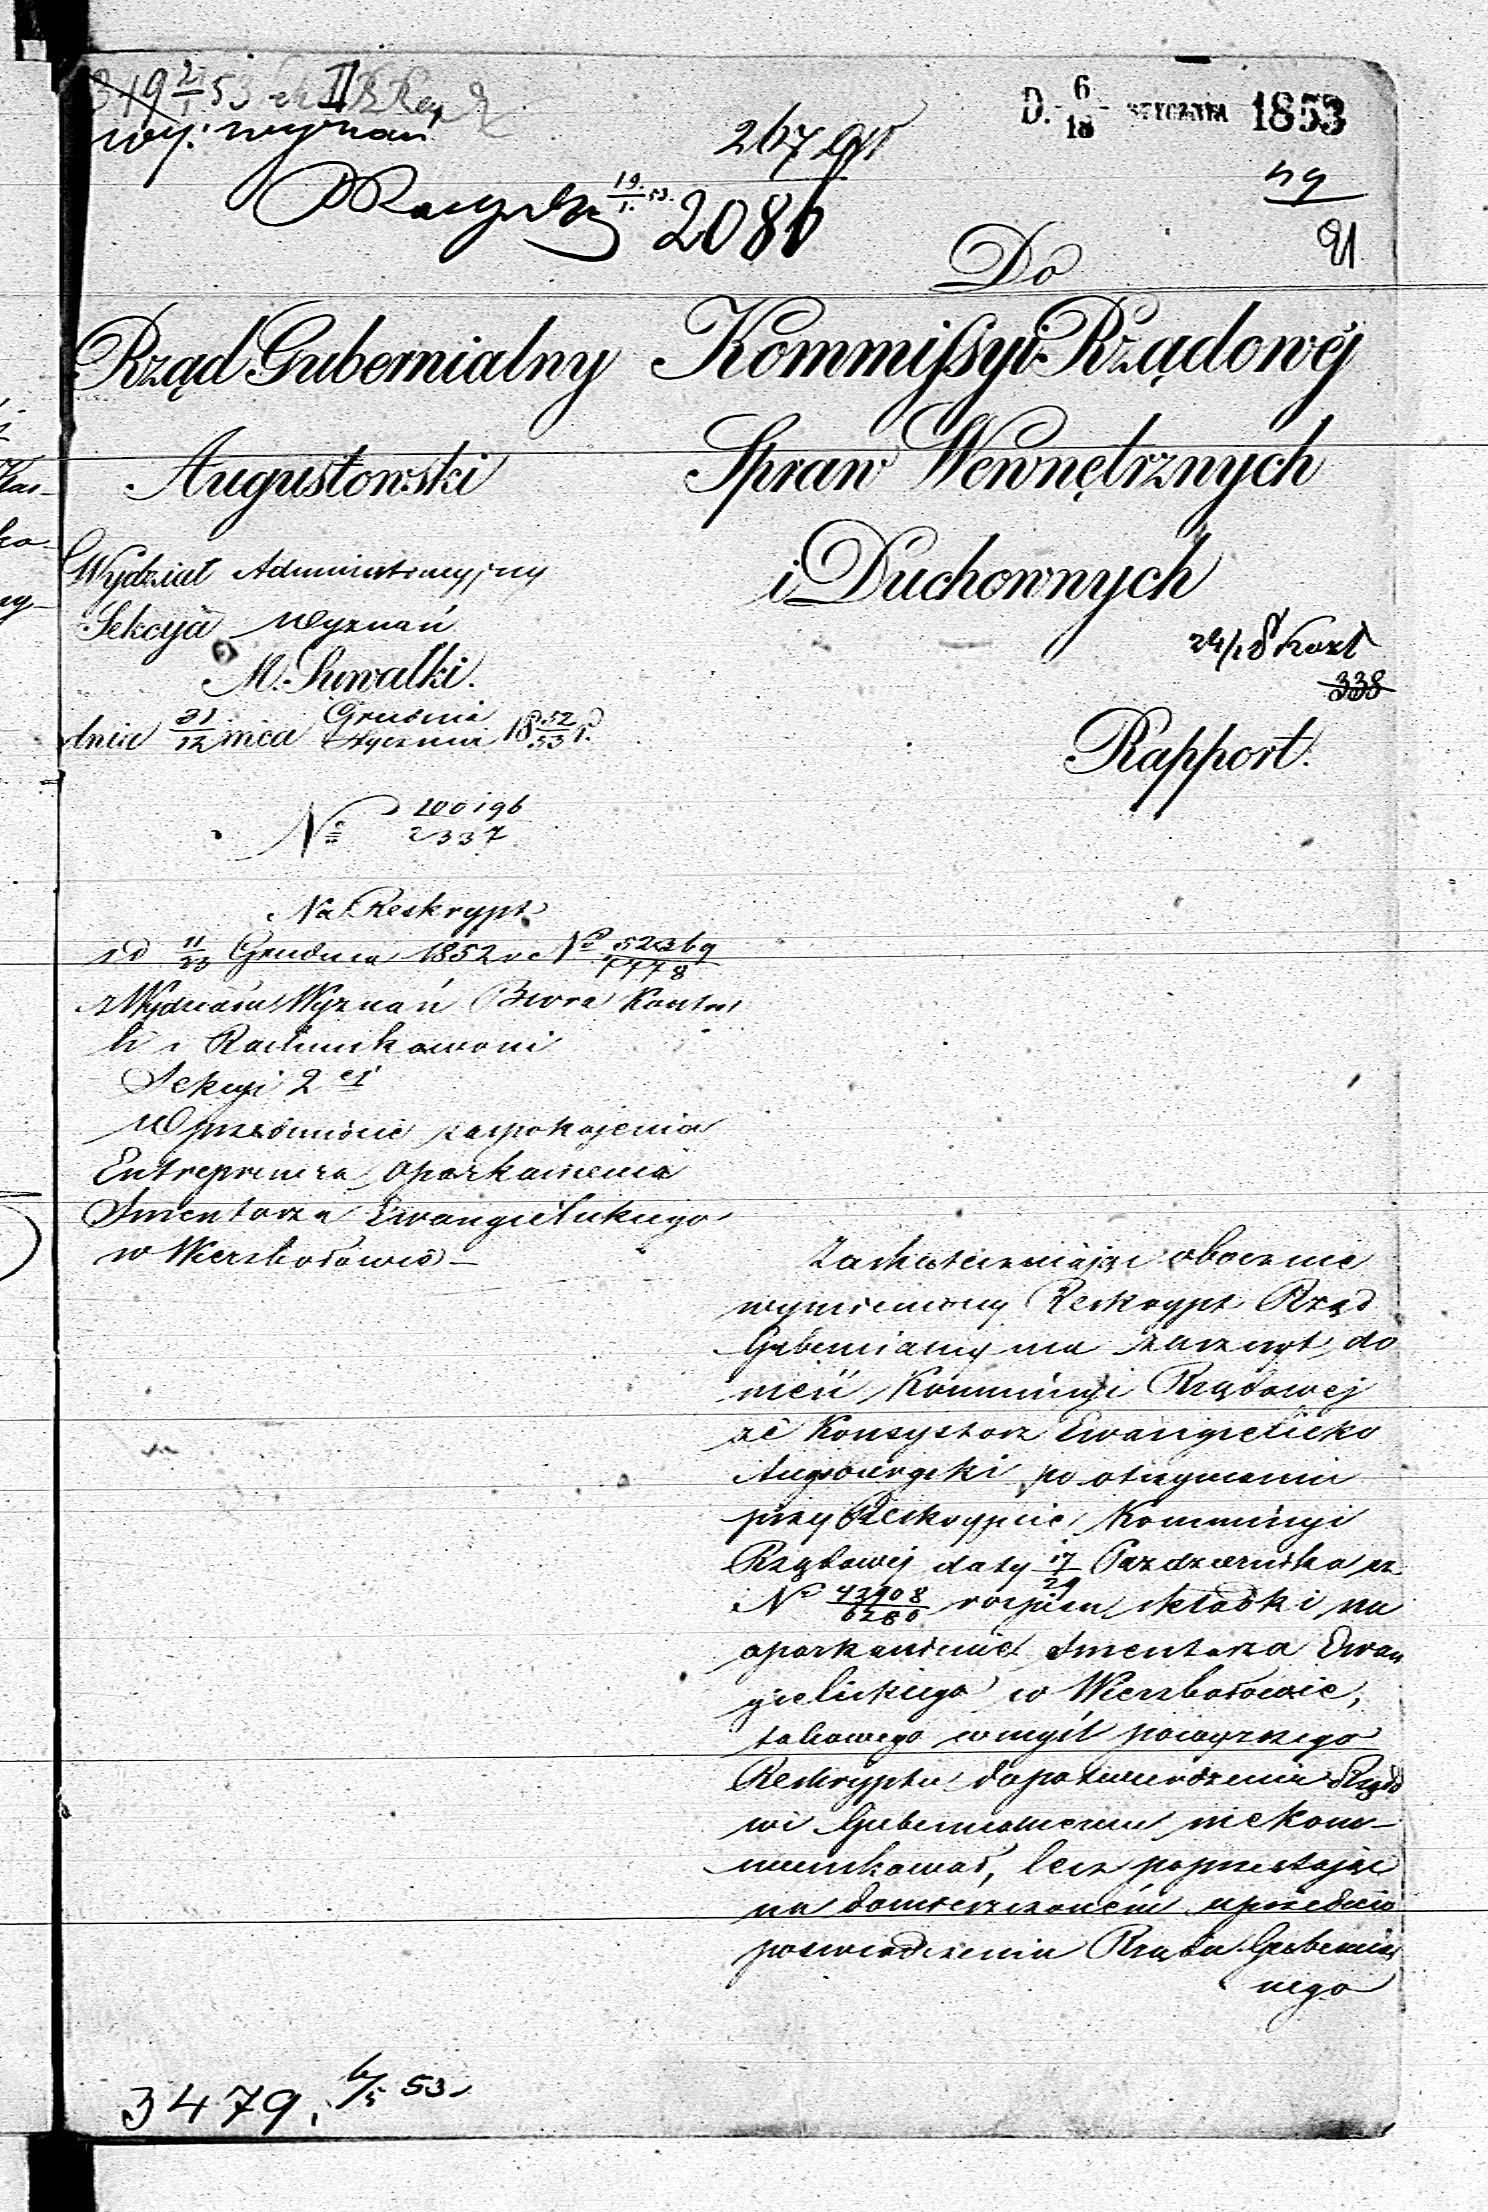 319 2/1 53
wyz. wyznań
D. 6/18 STYCZNIA 1853
267
19/1. 53.
2086
21
Do
Rząd Gubernialny
Kommissyi Rządowéj
Augustowski
Spraw Wewnętrznych
i Duchownych
Wydział Administracyjny
Sekcyja Wyznań
M. Suwałki.
338
dnia 31/12 mca Grudnia/Stycznia 18 52/53 r.
Rapport.
№ 100196/2337
Na Reskrypt
od 11/23 Grudnia 1852 r. № 52369/7778
z Wydziału Wyznań Biura Kontrol
li i Rachunkowości
Sekcyi 2ej
W przedmiocie zaspokojenia
Entreprenera oparkanienia
Smentarza Ewangielickiego
w Wierzbołowie –
Zadosyćczyniąc obocznie
wymieniony Reskrypt Rząd
Gubernialny ma zaszczyt do
nieść Kommissyi Rządowej
że Konsystorz Ewangielicko
Augsburgski po otrzymaniu
przy Reskrypcie Kommissyi
Rządowej daty 17/29 Października r.z.
№ 43908/6280 rozpisu składki na
oparkanienie Smentarza Ewan
gielickiego w Wierzbołowie,
takowego w myśl powyższego
Reskryptu do potwierdzenia Rządo
wi Gubernialnemu niekom-
munikował, lecz poprzestając
na domieszczoném uprzednio
poświadczeniu Rządu Gubernial
nego
3479. 6/5 53